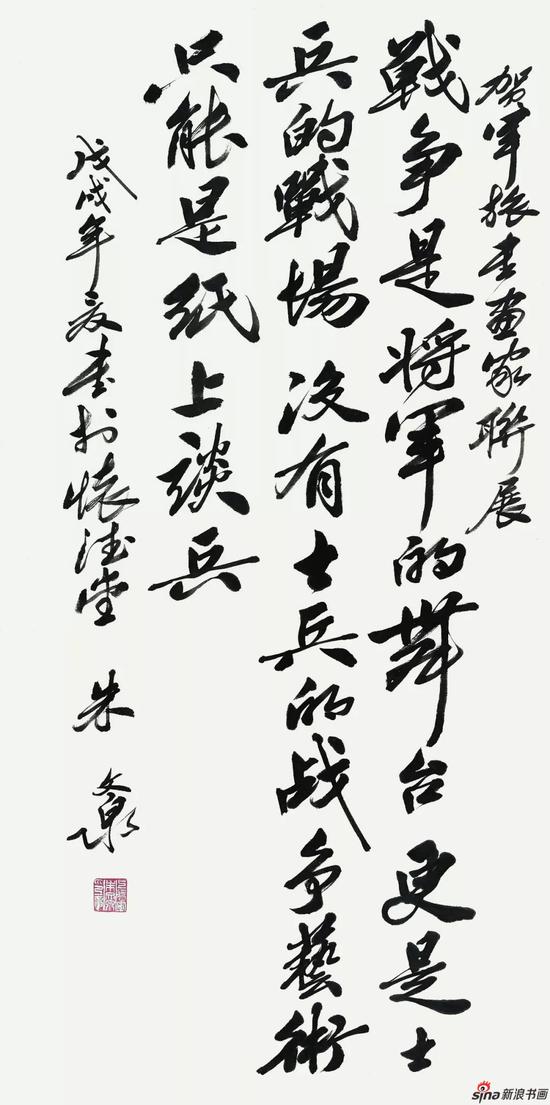 贺军旅书画家聯展
戰争是将军的舞台更是士
兵的戰場没有士兵的战争藝術
只能是纸上谈兵
戊戌年夏書於懷德堂 朱文泉
sina新浪书画